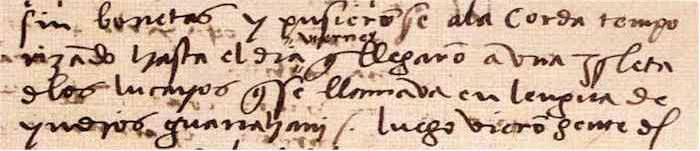 sin bonetas y pusierōse ala corda tempo
rizādo hasta el dia viernes q̄ llegarō a vna Isleta
dlos lucayos q̄ se llamava en lengua de
yndios guanahani /. luego vierō gente dſ